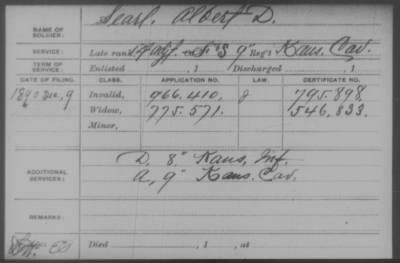 NAME OF SOLDIER: Searl, Albert D.
SERVICE: Late rank, F & S 9" Reg't Kans. Cav.
TERM OF SERVICE: Enlisted , 1 Discharged , 1
DATE OF FILING. CLASS. APPLICATION NO. LAW. CERTIFICATE NO.
1890 9 Invalid, 966.410, 795.898,
Widow, 775.571. 546,833.
Minor,
ADDITIONAL SERVICES: D. 8" Kans. Inf.
A, 9" Kans. Cav.
REMARKS:
Died , 1 , at